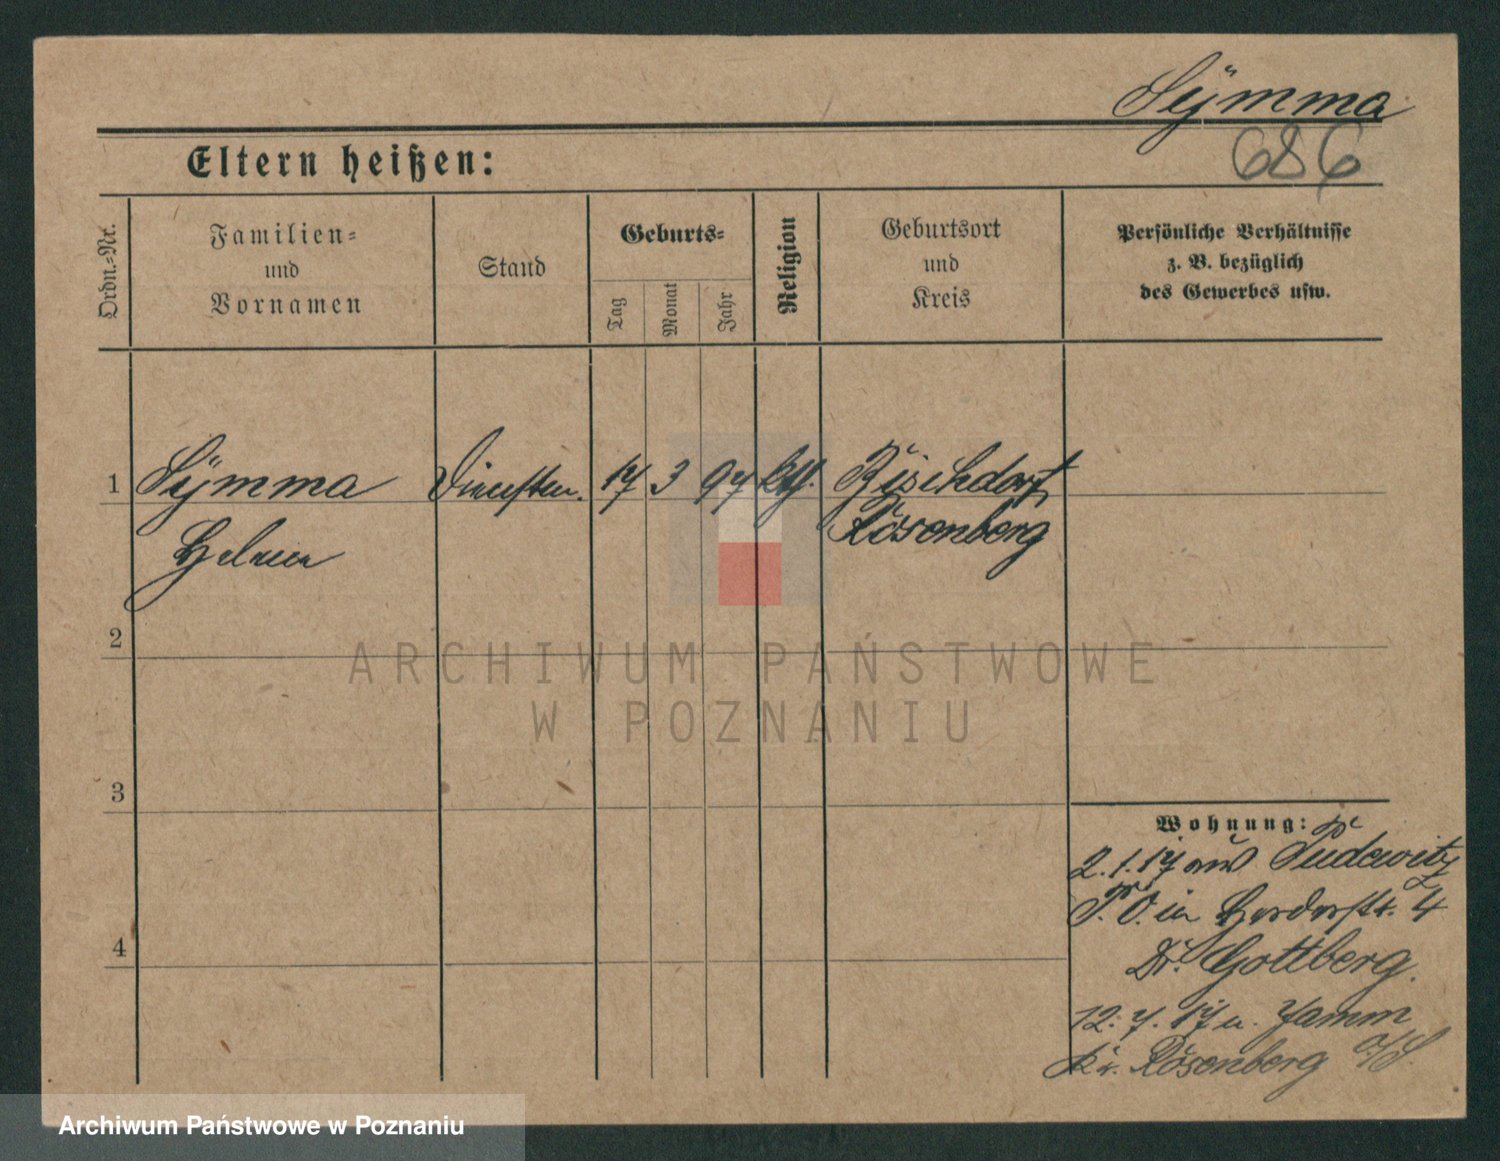 Sÿmma
686
Eltern heißen:
Ordn.-Nr.
Familien-
und
Vornamen
Stand
Geburts-
Tag
Monat
Jahr
Religion
Geburtsort
und
Kreis
Persönliche Verhältnisse
z. B. bezüglich
des Gewerbes usw.
1 Sÿmma 17 3 97 kth. Bischdorf
Rosenberg
2
3
4
Wohnung:
2.1.17 aus Pudewitz
P. O. in Herderstr. 4
Dr. Gottberg.
12.7.17 n. Jamm
Kr. Rosenberg O/S.
ARCHIWUM PAŃSTWOWE
W POZNANIU
Archiwum Państwowe w Poznaniu